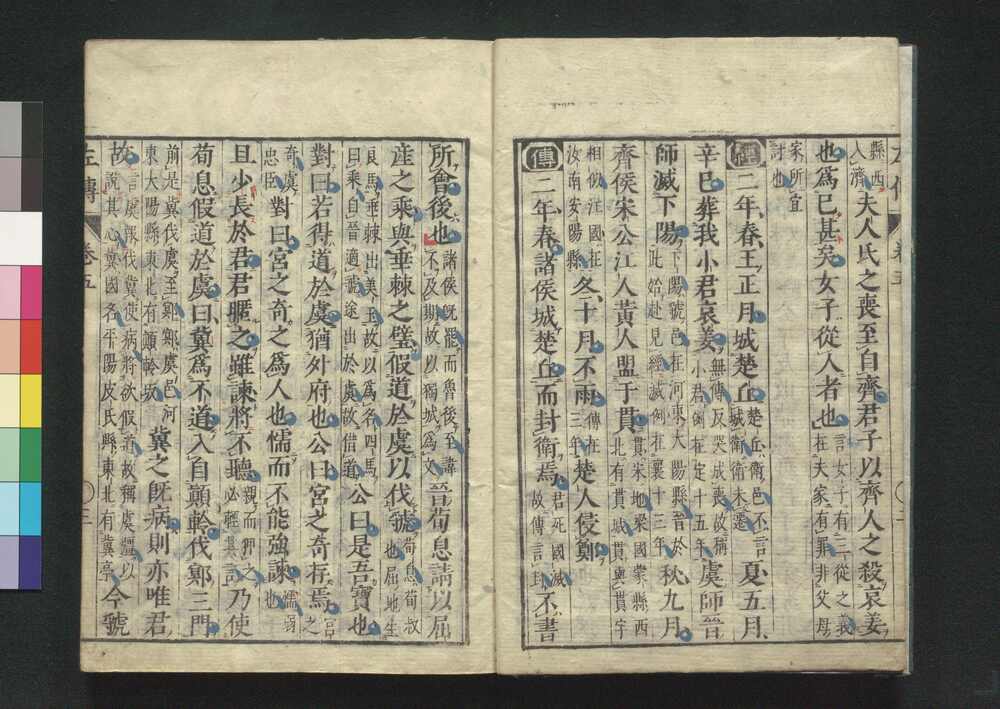 縣西入濟夫人氏之喪至自齊君子以齊人之殺哀姜
也為已甚矣女子從人者也言女子有三從之義在夫家有罪非父母
家所宜討也
經二年春王正月城楚丘楚丘衛邑不言城衛衛未遷夏五月
辛巳葬我小君哀姜無傳反哭成喪故稱小君例在定十五年虞師晉
師滅下陽下陽虢邑在河東大陽縣晉於此始赴見經滅例在襄十三年秋九月
齊侯宋公江人黃人盟于貫貫宋地梁國蒙縣西北有貰城貰與貫字
相似江國在汝南安陽縣冬十月不雨傳在三年楚人侵鄭
傳二年春諸侯城楚丘而封衛焉君死國滅故傳言封不書
所會後也諸侯既罷而魯後至諱不及期故以獨城為文晉荀息請以屈
產之乘與垂棘之璧假道於虞以伐虢荀息荀叔也屈地生
良馬垂棘出美玉故以為名四馬曰乘自晉適虢途出於虞故借道公曰是吾寶也
對曰若得道於虞猶外府也公曰宮之奇存焉宮之
奇虞忠臣對曰宮之奇之為人也懦而不能強諫懦弱也
且少長於君君暱之雖諫將不聽親而狎之必輕其言乃使
荀息假道於虞曰冀為不道入自顛軨伐鄍三門
前是冀伐虞至鄍鄍虞邑河東大陽縣東北有顛軨坂冀之既病則亦唯君
故言虞報伐冀使病將欲假道故稱虞彊以說其心冀國名平陽皮氏縣東北有冀亭今虢
左傳 卷五 三